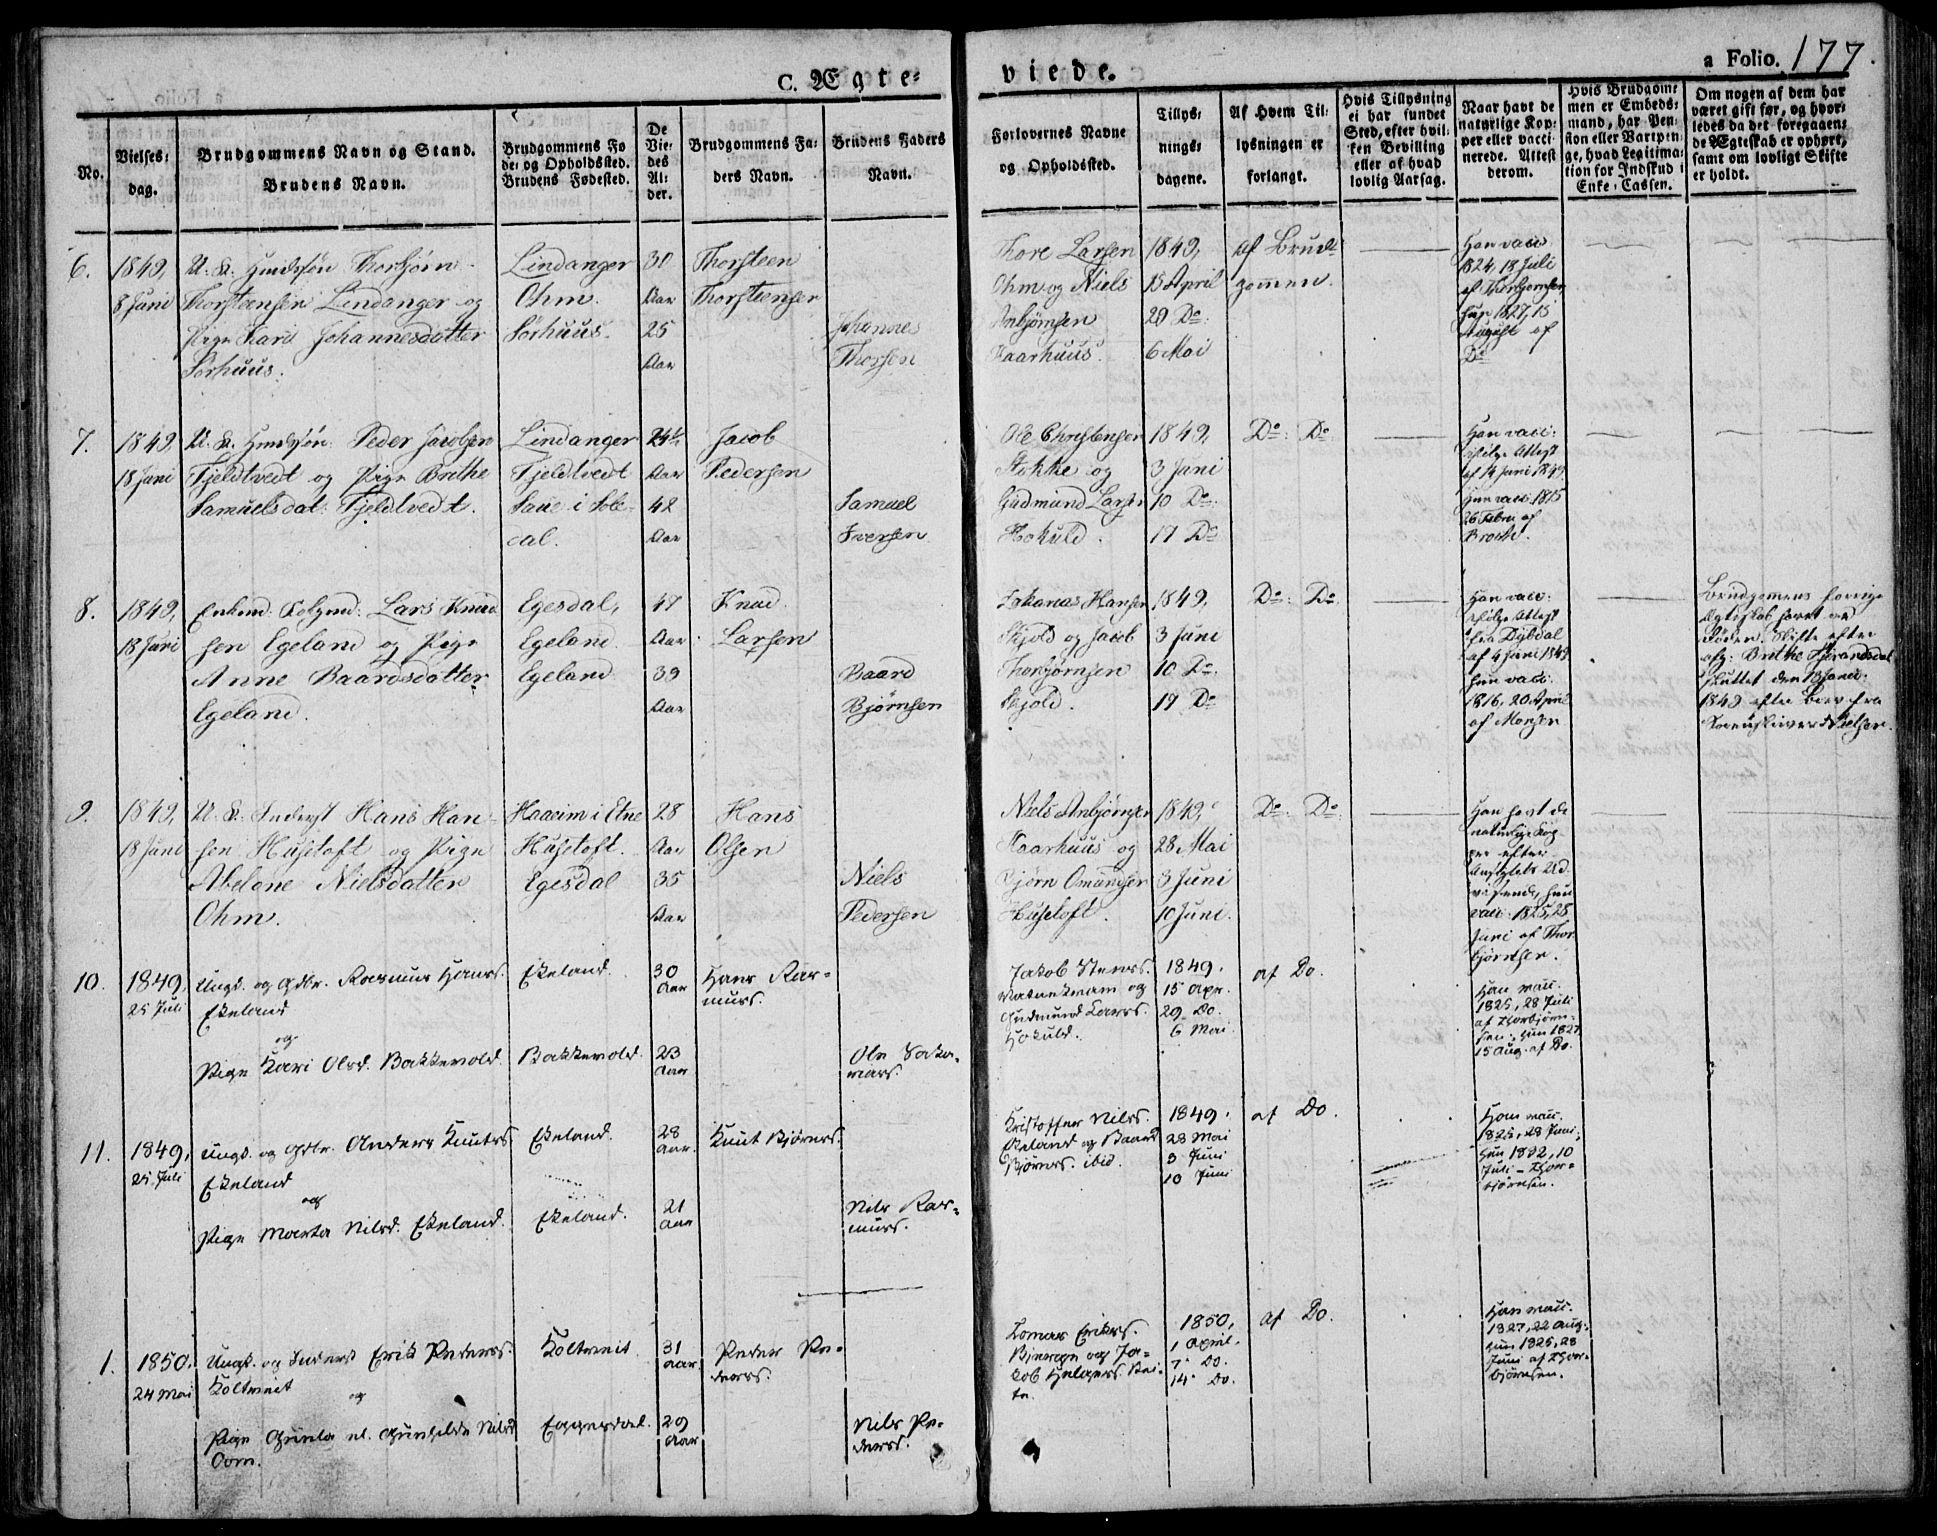 C. Ægte=
viede.
a Folio. 177.
No.
Vielses=
dag.
Brudgommens Navn og Stand.
Brudens Navn.
Brudgommens Fø
de= og Opholdssted.
Brudens Fødested.
De
Vie=
des
Al=
der.
Brudgommens Fa=
ders Navn.
Brudens Faders
Navn.
Forlovernes Navne
og Opholdssted.
Tillys=
nings=
dagene.
Af Hvem Til=
lysningen er
forlangt.
Hvis Tillysning
ei har fundet
Sted, efter hvil=
ken Bevilling
eller af hvad
lovlig Aarsag.
Naar havt de
naturlige Kop=
per eller vacci=
nerede. Attest
derom.
Hvis Brudgom=
men er Embeds=
mand, har Pen=
sion eller Vartpen=
ge, hvad Legitima=
tion for Indskud i
Enke=Cassen.
Om nogen af dem har
været gift før, og hvor=
ledes da det foregaaen=
de Ægteskab er ophørt,
samt om lovligt Skifte
er holdt.
6.
1849,
8 Juni
U. K. Huusſøn Thorbjørn
Thorsteensen Lindanger og
Pige Kari Johannesdatter
Sørhuus.
Lindanger
Ohm.
Sørhuus.
30
Aar
25
Aar
Thorsteen
Thorsteensen
Johannes
Thorsen
Thore Larsen
Ohm og Niels
Anbjørnsen
Haarhuus.
1849,
15 April
29 Do:
6 Mai
af Brud=
gommen.
Han vacc:
1824, 18 Juli
af Thorbjørnsen
hun 1827, 15
August af
Do
7.
1849,
18 Juni
U. K. Huusſøn Peder Jacobsen
Fjeldtvedt og Pige Brithe
Samuelsdat: Fjeldtvedt.
Lindanger
Fjeldtvedt
Saue i Føle=
dal.
24½
Aar
42
Aar
Jacob
Pedersen
Samuel
Iversen
Ole Christensen
Stokke og
Gudmund Larsen
Hokuld.
1849,
3 Juni
10 Do:
17 Do
Do: Do
Han vacc:
ifølge Attest
af 14 Juni 1849
Hun vacc: 1815
26 Febru af
8.
1849,
18 Juni
Enkem: Lars Knud
sen Egeland og Pige
Anne Baardsdatter
Egeland.
Egesdal,
Egeland.
Egeland
47
Aar
39
Aar
Knud
Larsen
Baard
Bjørnsen
Johanas Hansen
Skjold og Jacob
Thorbjørnsen
Skjold.
1849,
3 Juni
10 Do:
17 Do
Do: Do
Han vacc:
ifølge Attest
fra Dybdal
af 4 Juni 1849
hun vacc:
1816, 20 April
af Monsen
Brudgomens forrige
Ægteskab hævet ved
Døden. Skifte efter
afg: Brithe
sluttet den
1849 efter Brev fra
9.
1849,
18 Juni
U. K. Inderst Hans Han=
sen Husetoft og Pige
Abelone Nielsdatter
Ohm.
Haaeim i Etne
Husetoft.
Egesdal
28
Aar
35
Aar
Hans
Olsen
Niels
Pedersen
Niels Anbjørnsen
Haarhuus og
Bjørn Omundsen
Husetoft.
1849,
28 Mai
3 Juni
10 Juni.
Do: Do
Han havt de
naturlige Kop
per efter
Ansigtets Ud
visende, hun
vacc: 1825, 28
Juni af Thor
bjørnsen.
10.
1849,
25 Juli
Ungk. og Gdbr. Rasmus Hanss.
Ekeland
og
Pige Kari Olsd. Bakkevold.
Ekeland.
Bakkevold.
30
Aar
23
Aar
Hans Ras=
muss.
Ole
Jakob Steens.
og
Gudmund Larss.
Hokuld.
1849.
15 Apr.
29 Do.
6 Mai
af Do.
Han vacc.
1825, 28 Juli
af Thorbjørn=
sen, hun 1827
15 Aug. af Do.
11.
1849,
25 Juli
Ungk. og Gdbr. Anders Knuts.
Ekeland
og
Pige Marta Nilsd. Ekeland.
Ekeland.
Ekeland.
28
Aar.
21
Aar
Knut Bjørnss.
Nils Ras=
muss.
Kristoffer Nilss.
Ekeland og Baard
Bjørnss. ibid.
1849.
28 Mai
3 Juni
10 Juni
af Do.
Han vacc.
1825, 28 Juni,
hun 1832, 10
Juli – Thor=
bjørnsen.
1.
1850.
24 Mai
Ungk. og Inderst Erik Pederss.
Koltveit
og
Pige Gunla el. Gunhilde Nilsd
Oom.
Koltveit
Eggesdal.
31
Aar.
29
Aar
Peder Pe=
derss.
Nils Pe=
derss.
Tomas Erikss.
Bjerge og Ja=
kob Helgess. Ve=
te.
1850,
1 April.
7. Do.
14. Do.
af Do.
Han vacc.
1827, 22 Aug.
hun 1825, 28
Juni af Thor=
bjørnsen.